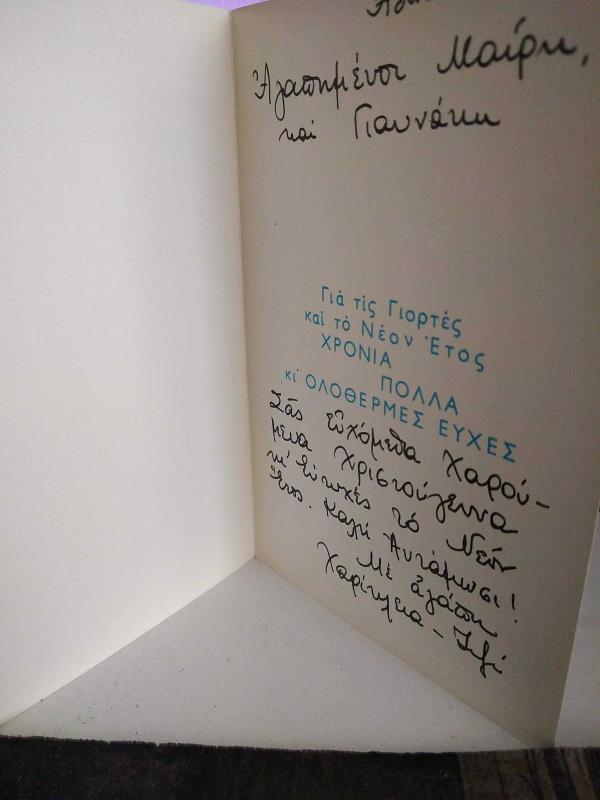 Ἀγαπημένοι Μαίρη,
καί Γιαννάκη
Γιά τίς Γιορτές
καί τό Νέον Ἔτος
ΧΡΟΝΙΑ
ΠΟΛΛΑ
κι' ΟΛΟΘΕΡΜΕΣ ΕΥΧΕΣ
Σᾶς εὐχόμεθα Χαρού-
μενα Χριστούγεννα
κι' εὐτυχές τό Νέον
Ἔτος. Καλή Ἀντάμωσι!
Μέ ἀγάπη
Χαρίκλεια -